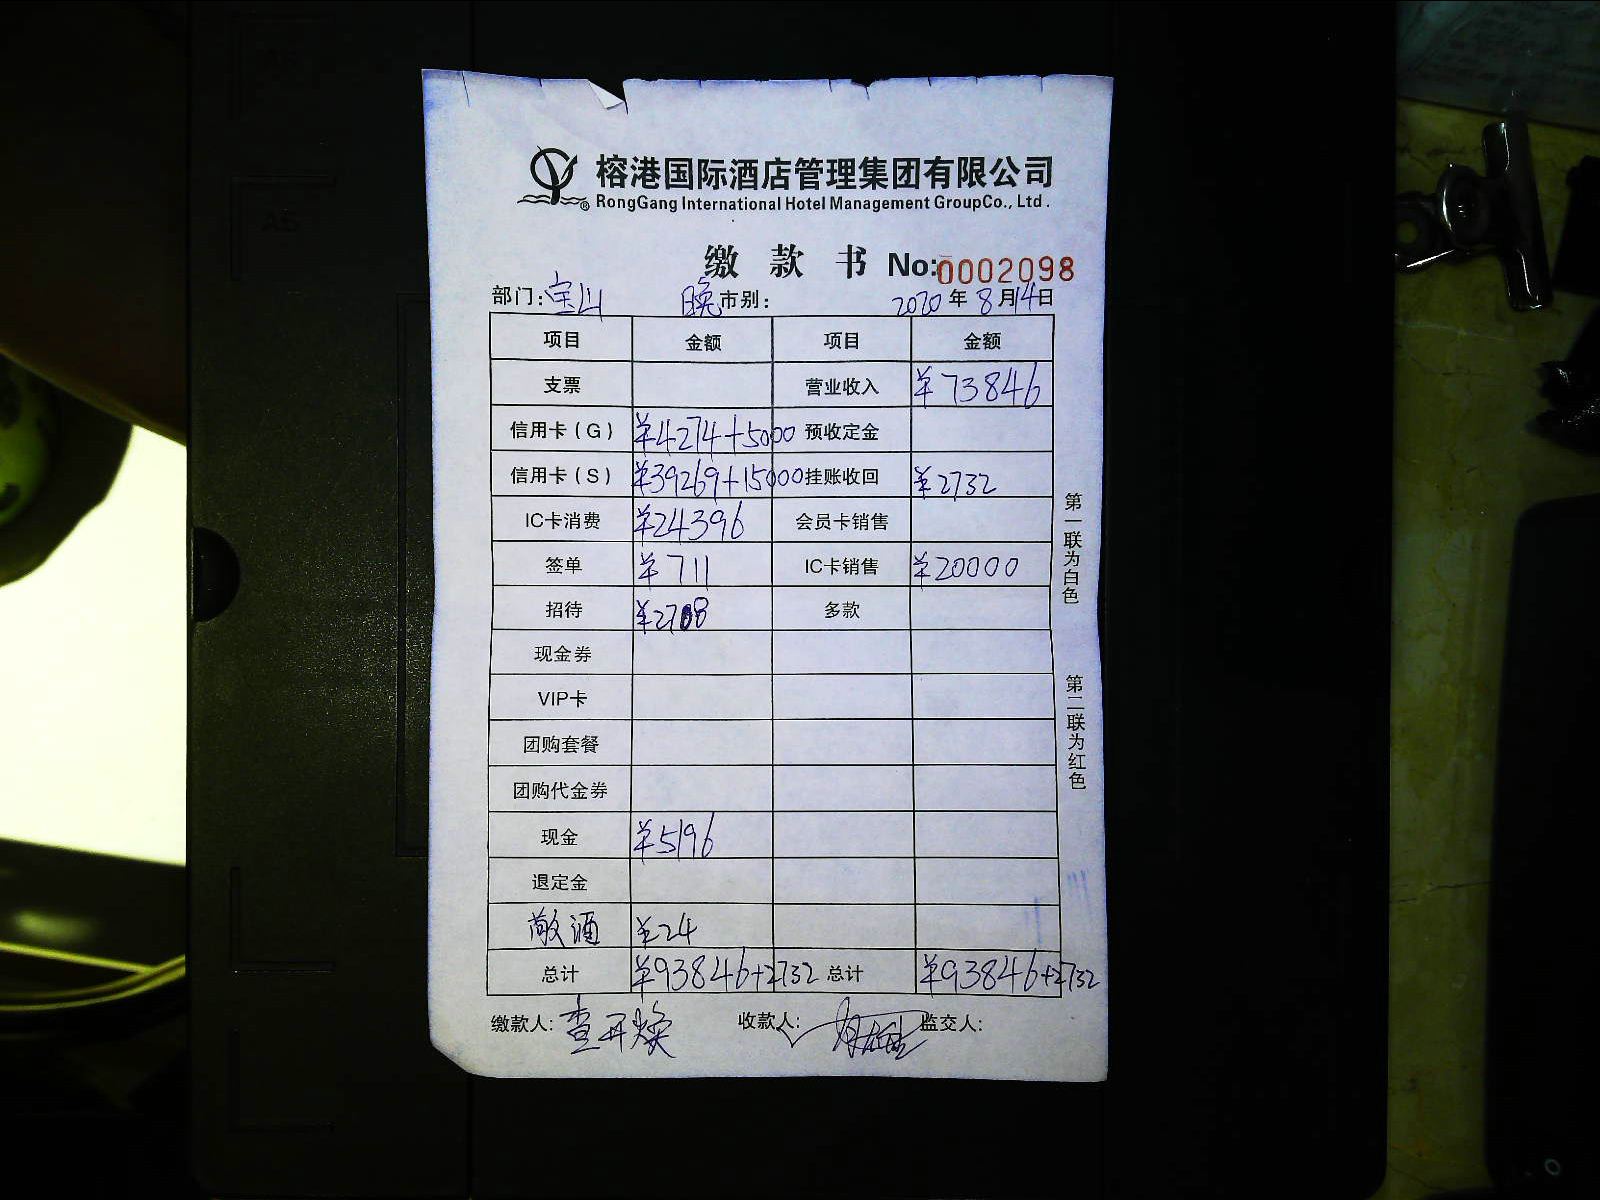 榕港国际酒店管理集团有限公司
RongGang International Hotel Management GroupCo., Ltd.
缴款书 No:0002098
部门:宝山 晚市别: 2020年8月14日
项目 金额 项目 金额
支票 营业收入 ¥73846
信用卡(G) ¥4274+5000 预收定金
信用卡(S) ¥39269+15000 挂账收回 ¥2732
IC卡消费 ¥24396 会员卡销售
签单 ¥711 IC卡销售 ¥20000
招待 ¥2708 多款
现金券
VIP卡
团购套餐
团购代金券
现金 ¥5196
退定金
散酒 ¥24
总计 ¥93846+2732 总计 ¥93846+2732
缴款人: 收款人: 监交人:
第一联为白色
第二联为红色
A5